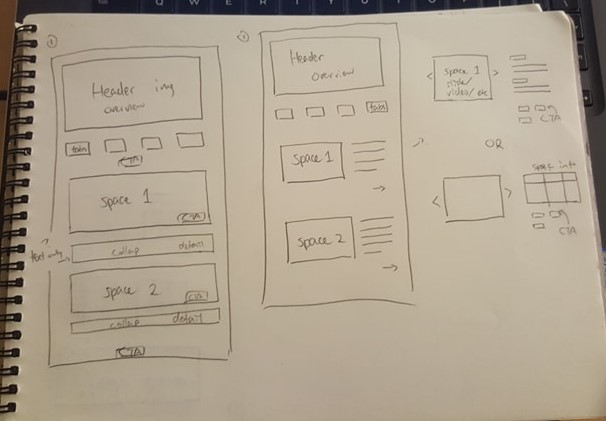 Q W E R T Y U I O P
1
Header img
overview
tabs
CTA
space 1
CTA
collap detail
space 2
CTA
collap detail
CTA
2
Header
overview
tabs
space 1
space 2
< space 1 >
slide/
video/ etc
CTA
OR
< >
CTA